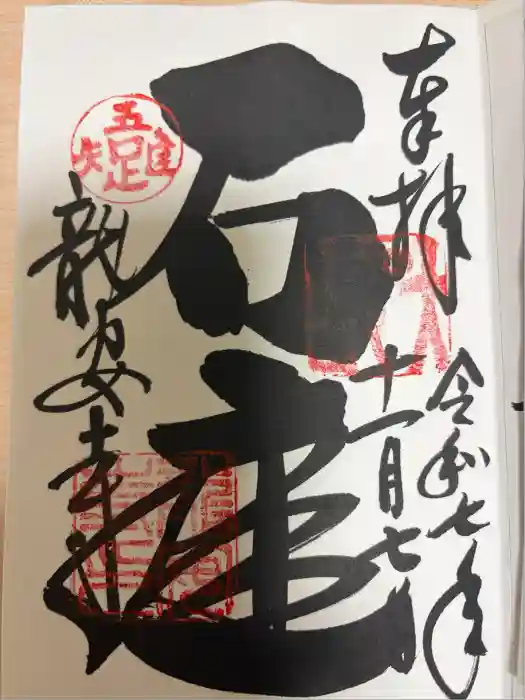 奉拝
令和七年
十一月七日
石庭
吾唯足知
龍安寺